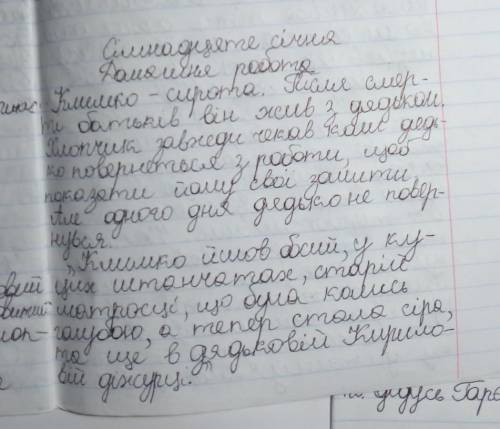 Сімнадцяте січня
Домашня робота
Климко – сирота. Після смер-
ти батьків він жив з дядьком.
Хлопчик завжди чекав коли дядь-
ко повернеться з роботи, щоб
показати йому свої зошити.
Але одного дня дядько не повер-
нувся.
„Климко йшов босий, у ку-
ших штанчатах, старій
матросці, що була колись
голубою, а тепер стала сіра,
та ще в дядьковій Кирило-
вій діжурці."
дідусь Гаре